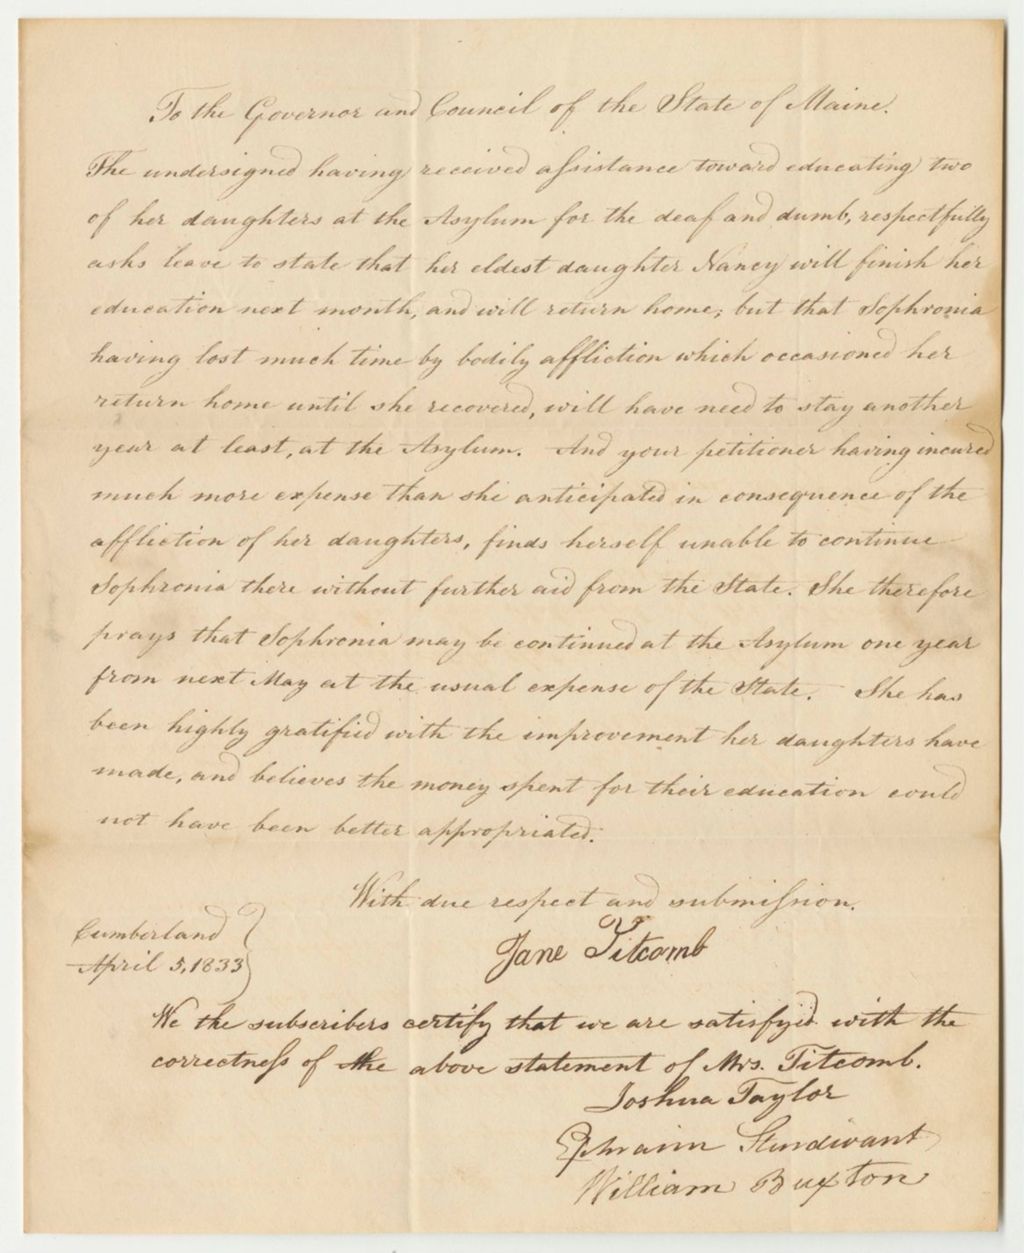 To the Governor and Council of the State of Maine.
The undersigned having received assistance toward educating two
of her daughters at the Asylum for the deaf and dumb, respectfully
asks leave to state that her eldest daughter Nancy will finish her
education next month, and will return home; but that Sophronia
having lost much time by bodily affliction which occasioned her
return home until she recovered, will have need to stay another
year at least, at the Asylum. And your petitioner having incured
much more expense than she anticipated in consequence of the
affliction of her daughters, finds herself unable to continue
Sophronia there without further aid from the State. She therefore
prays that Sophronia may be continued at the Asylum one year
from next May at the usual expense of the State. She has
been highly gratified with the improvement her daughters have
made, and believes the money spent for their education could
not have been better appropriated.
With due respect and submission.
Jane Titcomb
Cumberland
April 5, 1833
We the subscribers certify that we are satisfyed with the
correctness of the above statement of Mrs. Titcomb.
Joshua Taylor
Ephraim Sturdivant
William Buxton